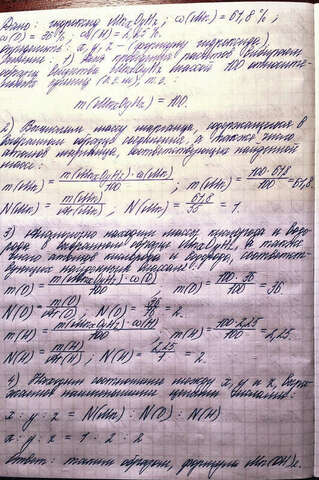 Дано: гидроксид MnxOyHz; ω(Mn) = 61,8%;
ω(O) = 36%; ω(H) = 2,25%.
x, y, z - (формулу гидроксида)
Решение: 1) Для проведения расчетов
образец вещества MnxOyHz массой 100
единиц т.е.
m(MnxOyHz) = 100.
2) Вычислим массу марганца, содержащегося в
образце а также число
атомов марганца, соответствующее найденной
массе:
m(Mn) = m(MnxOyHz)·ω(Mn)/100 ; m(Mn) = 100·61,8/100 = 61,8.
N(Mn) = m(Mn)/Mr(Mn) ; N(Mn) = 61,8/55 = 1.
3) находим массу кислорода и водо-
рода в образце MnxOyHz, а также
число атомов кислорода и водорода, соответст-
вующих найденным массам:
m(O) = m(MnxOyHz)·ω(O)/100 m(O) = 100·36/100 = 36
N(O) = m(O)/Mr(O) ; N(O) = 36/16 = 2.
m(H) = m(MnxOyHz)·ω(H)/100 m(H) = 100·2,25/100 = 2,25.
N(H) = m(H)/Mr(H) ; N(H) = 2,25/1 = 2.
4) Находим соотношение между x, y и z, выра-
женное целыми числами:
x : y : z = N(Mn) : N(O) : N(H)
x : y : z = 1 : 2 : 2
Ответ: таким образом, формула Mn(OH)2.